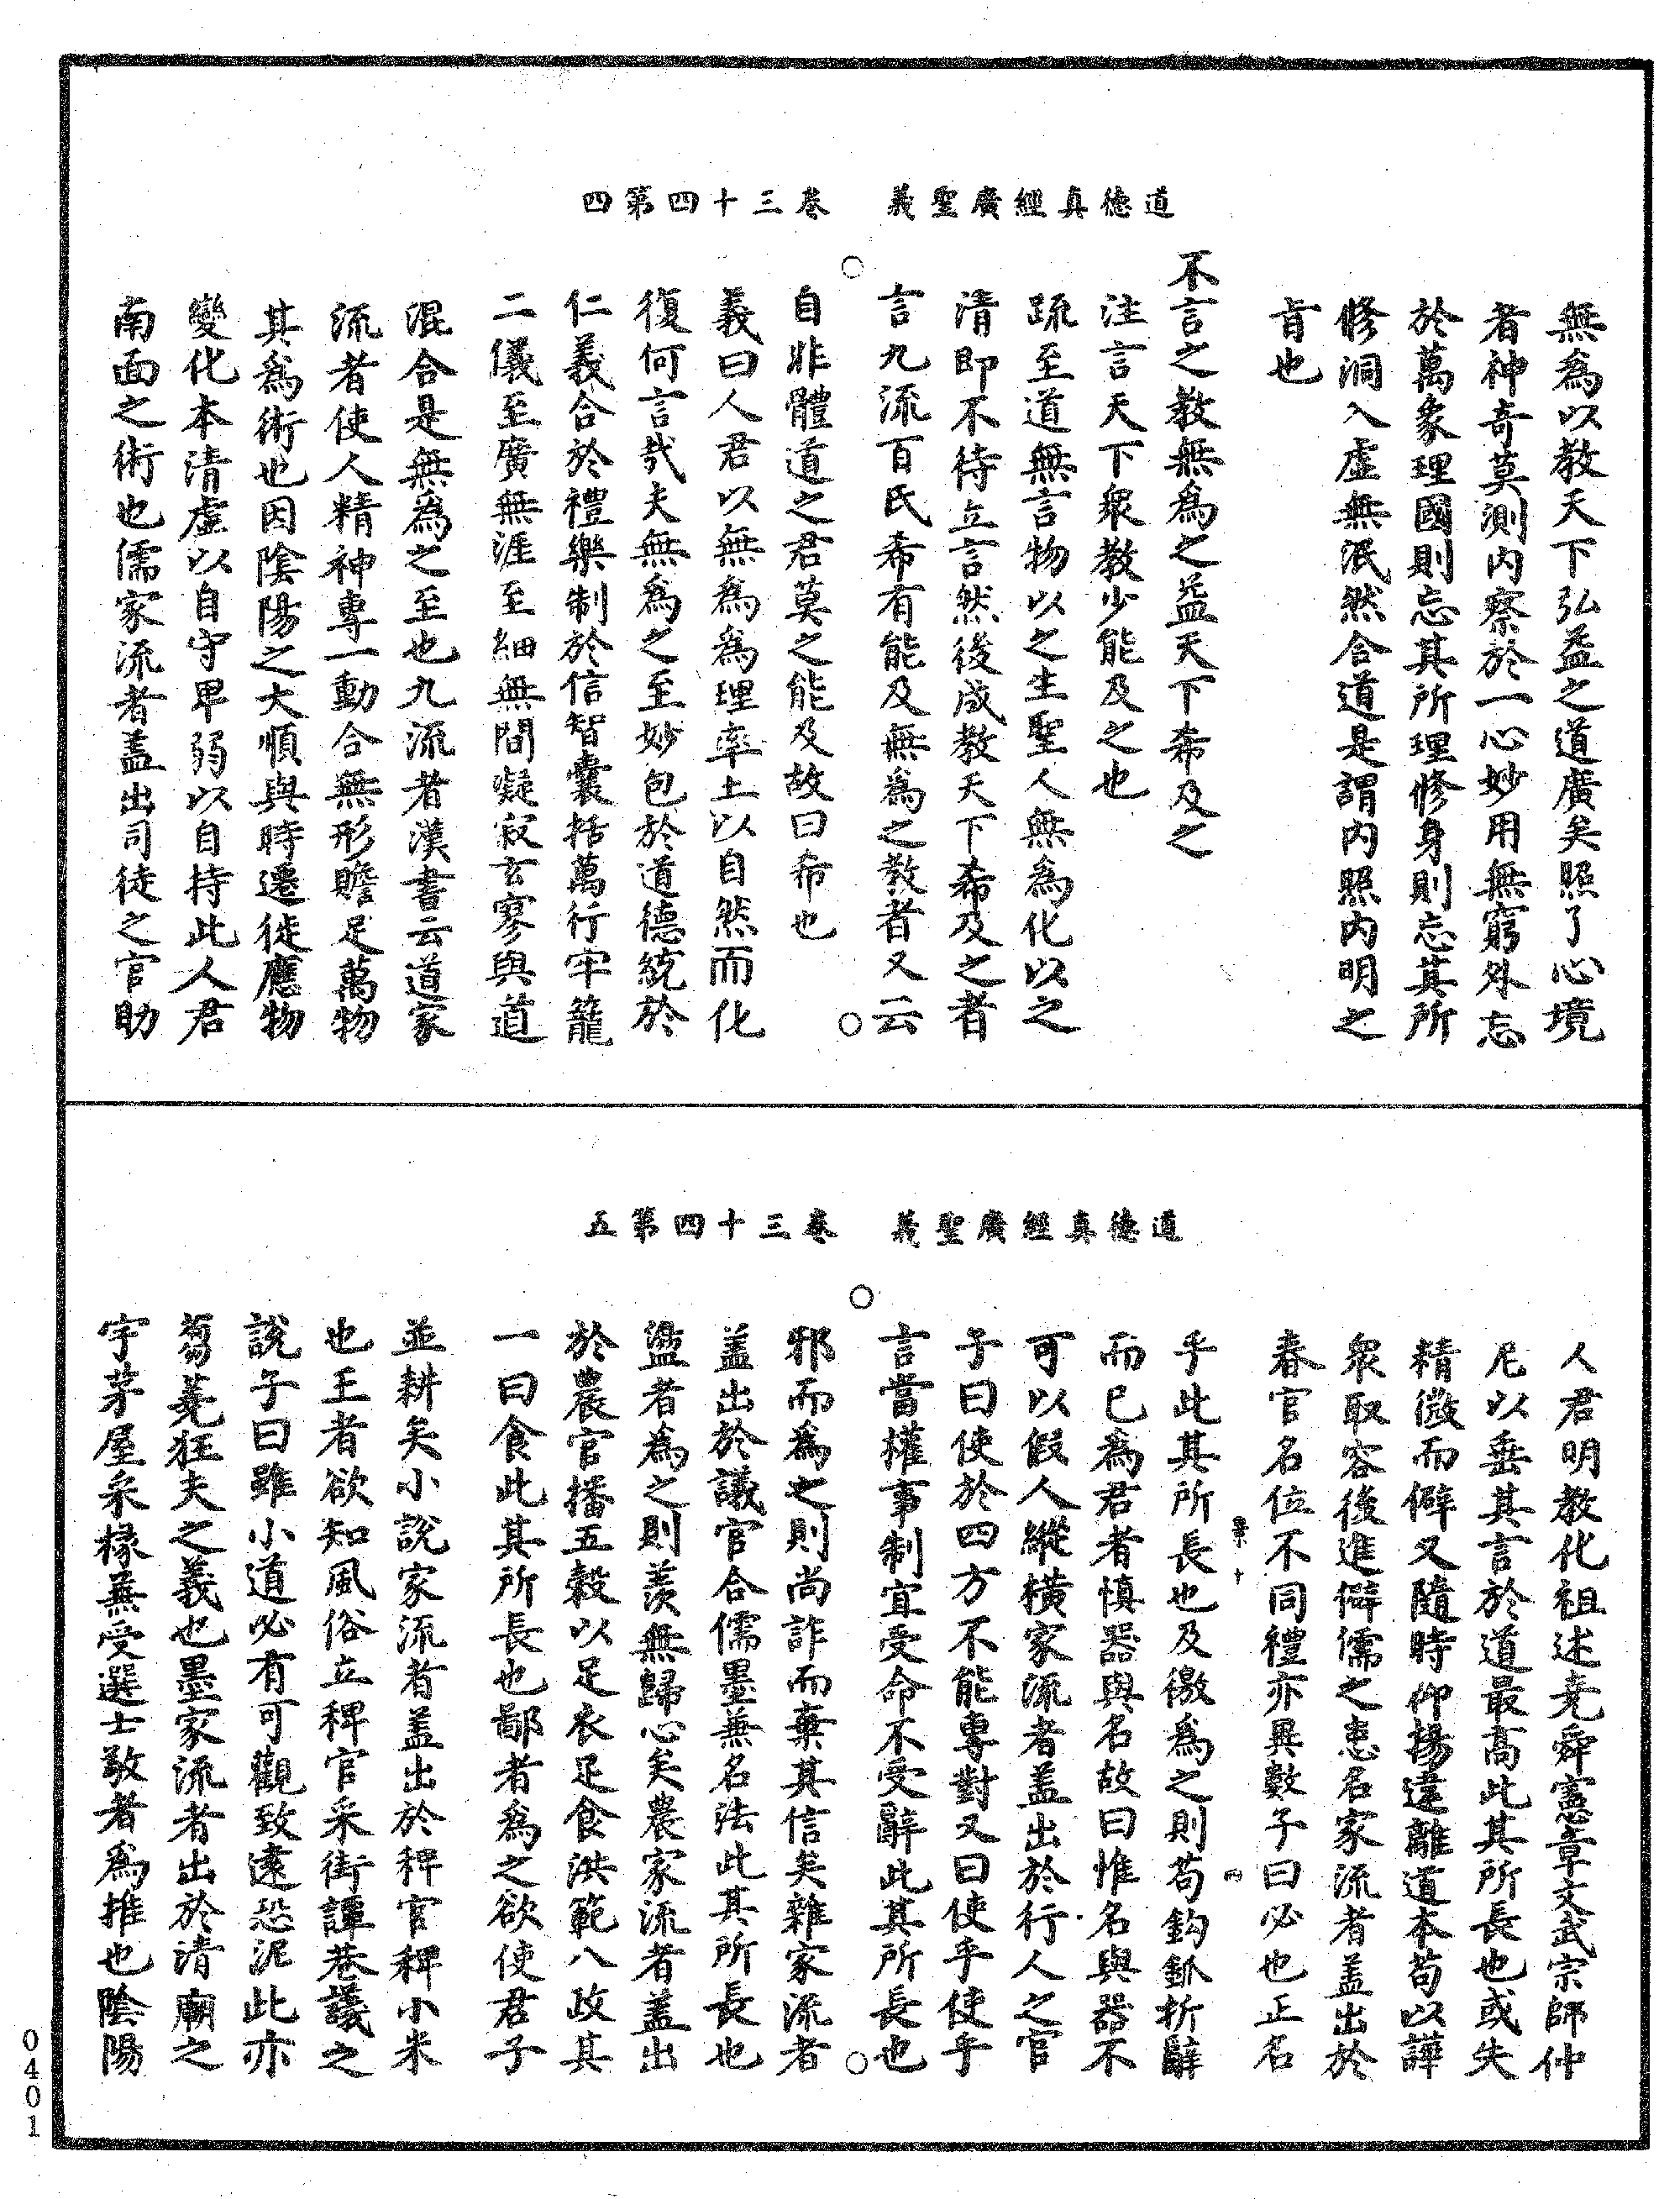 道德真經廣聖義　卷三十四第四
無爲以教天下弘益之道廣矣照了心境
者神奇莫測內察於一心妙用無窮外忘
於萬象理國則忘其所理修身則忘其所
修洞入虛無泯然合道是謂內照內明之
旨也
不言之教無爲之益天下希及之
注言天下衆教少能及之也
疏至道無言物以之生聖人無爲化以之
清即不待立言然後成教天下希及之者
言九流百氏希有能及無爲之教者又云
自非體道之君莫之能及故曰希也
義曰人君以無爲爲理率土以自然而化
復何言哉夫無爲之至妙包於道德統於
仁義合於禮樂制於信智囊括萬行牢籠
二儀至廣無涯至細無間凝寂玄寥與道
混合是無爲之至也九流者漢書云道家
流者使人精神專一動合無形贍足萬物
其爲術也因陰陽之大順與時遷徙應物
變化本清虛以自守卑弱以自持此人君
南面之術也儒家流者蓋出司徒之官助
道德真經廣聖義　卷三十四第五
人君明教化祖述堯舜憲章文武宗師仲
尼以垂其言於道最高此其所長也或失
精微而僻又隨時仰揚違離道本苟以譁
衆取容後進僻儒之患名家流者蓋出於
春官名位不同禮亦異數子曰必也正名
乎此其所長也及徼爲之則苟鈎鈲折辭
而已爲君者慎器與名故曰惟名與器不
可以假人縱橫家流者蓋出於行人之官
子曰使於四方不能專對又曰使乎使乎
言當權事制宜受命不受辭此其所長也
邪而爲之則尚詐而棄其信矣雜家流者
蓋出於議官合儒墨兼名法此其所長也
盪者爲之則羨無歸心矣農家流者蓋出
於農官播五穀以足衣足食洪範八政其
一曰食此其所長也鄙者爲之欲使君子
並耕矣小說家流者蓋出於稗官稗小米
也王者欲知風俗立稗官采街譚巷議之
說子曰雖小道必有可觀致遠恐泥此亦
芻蕘狂夫之義也墨家流者出於清廟之
宇茅屋采椽無受選士敬者爲推也陰陽
0401